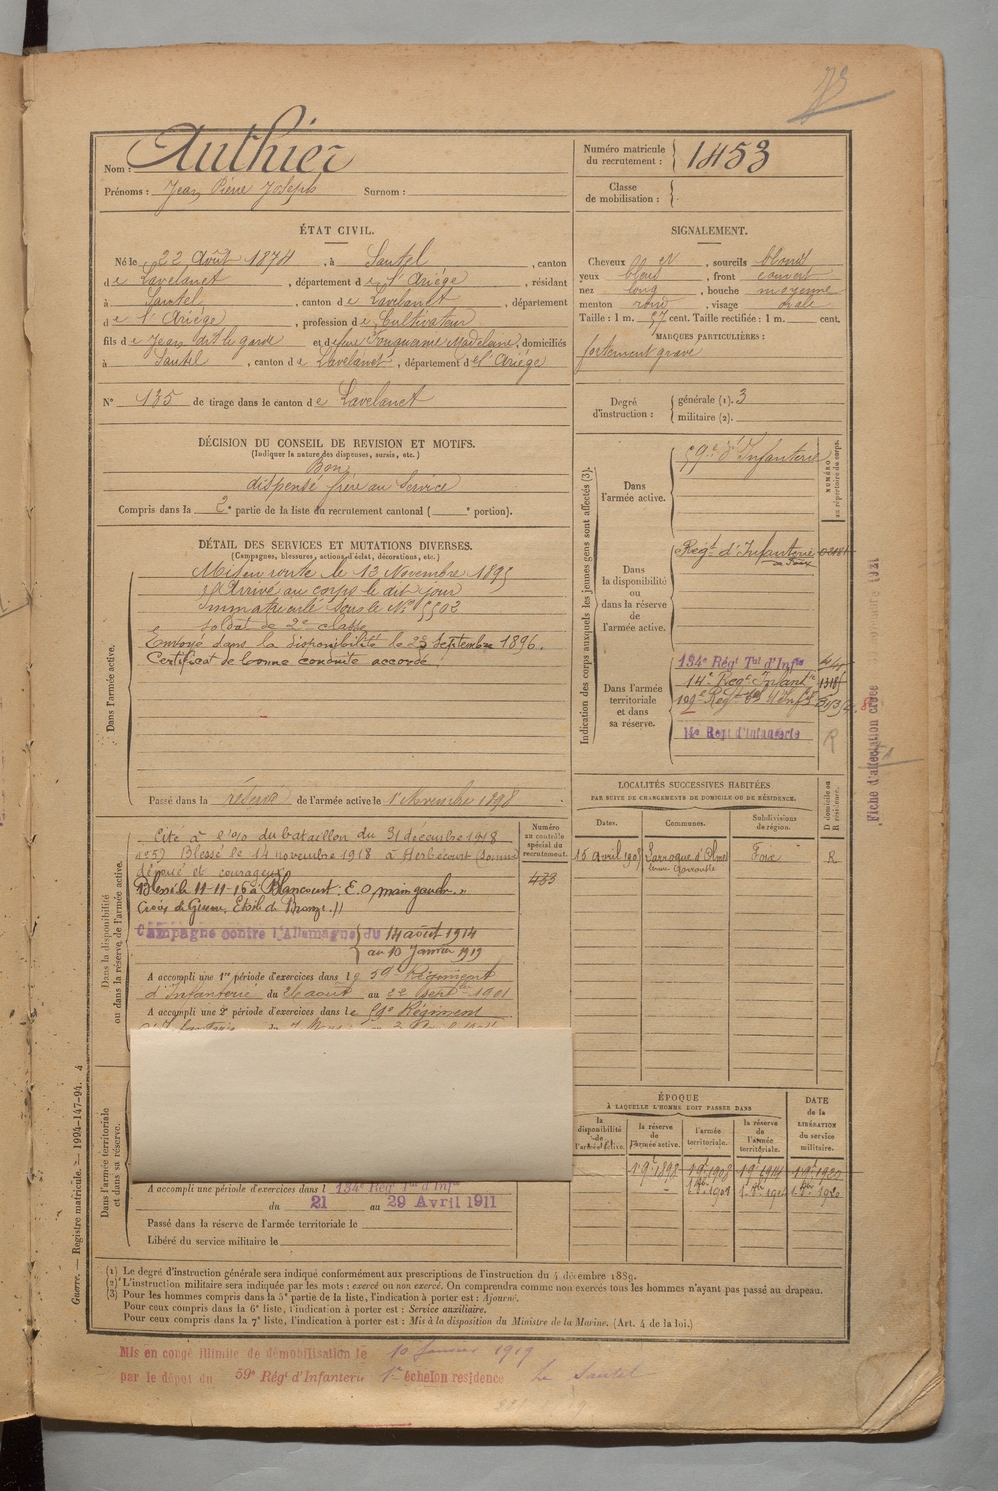 Nom : Authier
Prénoms : Jean Pierre Joseph Surnom :
Numéro matricule du recrutement : 1453
Classe de mobilisation :
ÉTAT CIVIL.
Né le 22 Août 1874, à Sautel, canton
de Lavelanet, département de l'Ariège, résidant
à Sautel, canton de Lavelanet, département
de l'Ariège, profession de Cultivateur
fils de Jean dit le garde et de feue Madelaine, domiciliés
à Sautel, canton de Lavelanet, département de l'Ariège
N° 135 de tirage dans le canton de Lavelanet
SIGNALEMENT.
Cheveux , sourcils blonds
yeux bleus, front couvert
nez long, bouche moyenne
menton rond, visage ovale
Taille : 1 m. cent. Taille rectifiée : 1 m. cent.
MARQUES PARTICULIÈRES :
fortement gravé
Degré d'instruction : générale (1). 3
militaire (2).
DÉCISION DU CONSEIL DE REVISION ET MOTIFS.
(Indiquer la nature des dispenses, sursis, etc.)
Bon
dispensé frère au Service
Compris dans la 2e partie de la liste du recrutement cantonal ( e portion).
DÉTAIL DES SERVICES ET MUTATIONS DIVERSES.
(Campagnes, blessures, actions d'éclat, décorations, etc.)
Dans l'armée active.
Mis en route le 13 Novembre 1895
Arrivé au corps le dit jour
Immatriculé sous le N° 5502
soldat de 2e classe
Envoyé dans la disponibilité le 23 Septembre 1896.
Certificat de bonne conduite accordé.
Passé dans la réserve de l'armée active le 1 Novembre 1898
Indication des corps auxquels les jeunes gens sont affectés (3).
NUMÉRO au répertoire du corps.
Dans l'armée active.
59e d'Infanterie
Dans la disponibilité ou dans la réserve de l'armée active.
Régt d'Infanterie
de Foix
Dans l'armée territoriale et dans sa réserve.
134e Régt Tal d'Infie
14e Regt Infanie
14e Regt d'Infanterie
R
Fiche d'affectation créée 30 novembre 1921
LOCALITÉS SUCCESSIVES HABITÉES
PAR SUITE DE CHANGEMENTS DE DOMICILE OU DE RÉSIDENCE.
Dates. Communes. Subdivisions de région. D domicile ou R résidence.
15 avril 1905 Larroque d'Olmes Foix R
Dans la disponibilité ou dans la réserve de l'armée active.
Numéro au contrôle spécial du recrutement.
433
Cité à l'O/O du bataillon du 31 décembre 1918
n° 5) Blessé le 14 novembre 1918 à Herbécourt (homme
dévoué et courageux
Blessé le 11-11-16 à Blancourt. E.O main gauche.
Croix de Guerre, Etoile de Bronze.
Campagne contre l'Allemagne du 14 août 1914
au 10 Janvier 1919
A accompli une 1re période d'exercices dans le 59e Régiment
d'Infanterie du 26 août au 22 Septbre 1901
A accompli une 2e période d'exercices dans le 59e Régiment
Dans l'armée territoriale et dans sa réserve.
A accompli une période d'exercices dans l 134e Régt Tal d'Infie
du 21 au 29 Avril 1911
Passé dans la réserve de l'armée territoriale le
Libéré du service militaire le
ÉPOQUE
À LAQUELLE L'HOMME DOIT PASSER DANS
la disponibilité de l'armée active. la réserve de l'armée active. l'armée territoriale. la réserve de l'armée territoriale. DATE de la LIBÉRATION du service militaire.
1 9e 1898 1 9e 1908 1 9e 1914 1 9e 1920
(1) Le degré d'instruction générale sera indiqué conformément aux prescriptions de l'instruction du 4 décembre 1889.
(2) L'instruction militaire sera indiquée par les mots : exercé ou non exercé. On comprendra comme non exercés tous les hommes n'ayant pas passé au drapeau.
(3) Pour les hommes compris dans la 5e partie de la liste, l'indication à porter est : Ajourné.
Pour ceux compris dans la 6e liste, l'indication à porter est : Service auxiliaire.
Pour ceux compris dans la 7e liste, l'indication à porter est : Mis à la disposition du Ministre de la Marine. (Art. 4 de la loi.)
Guerre. — Registre matricule. — 1994-147-94. 4
Mis en congé illimité de démobilisation le 10 Janvier 1919
par le dépot du 59e Régt d'Infanterie 1er échelon résidence Le Sautel